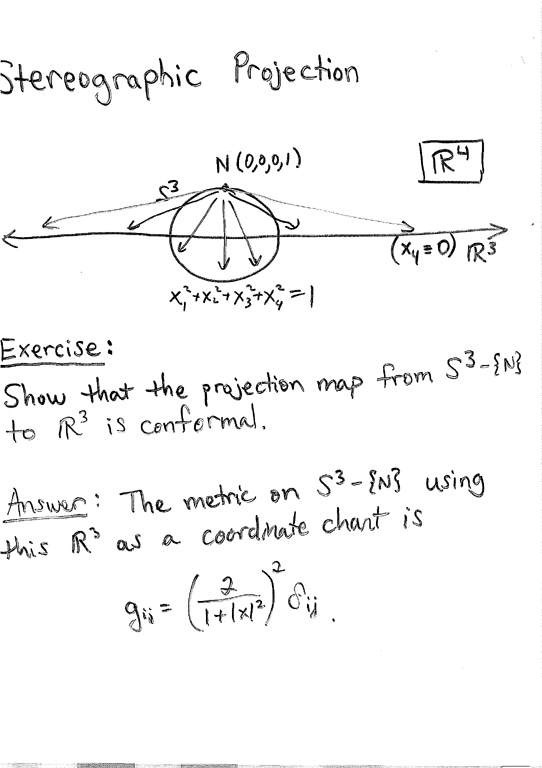 Stereographic Projection
N(0,0,0,1)
ℝ⁴
S³
(x₄ = 0) ℝ³
x₁²+x₂²+x₃²+x₄² = 1
Exercise:
Show that the projection map from S³-{N}
to ℝ³ is conformal.
Answer: The metric on S³-{N} using
this ℝ³ as a coordinate chart is
gᵢⱼ = (2/(1+|x|²))² δᵢⱼ.